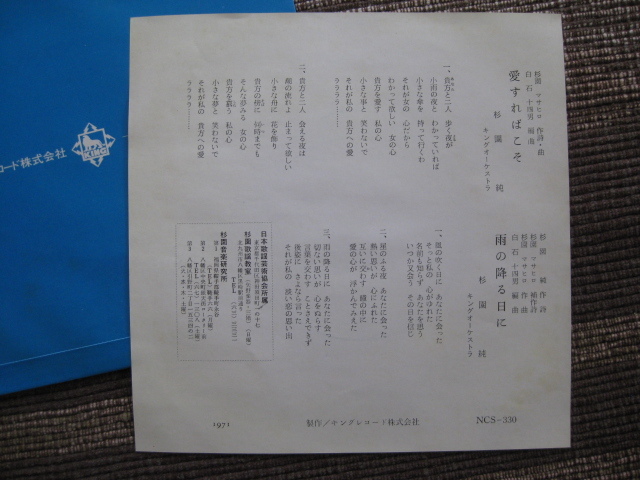 杉園 マサヒロ 作詩・曲
白石 十四男 編曲
愛すればこそ
杉園 純
キングオーケストラ
一、貴方と二人 歩く夜が
小雨の夜と わかっていれば
小さな傘を 持って行くわ
それが女の 心だから
わかって欲しい 女の心
貴方を愛す 私の心
小さな事と 笑わないで
それが私の 貴方への愛
ララララ……
二、貴方と二人 会える夜は
小さな舟に 花を飾り
貴方の胸に 何時までも
そんな夢みる 女の心
貴方を慕う 私の心
小さな夢と 笑わないで
それが私の 貴方への愛
ララララ……
杉園 純 作詩
杉園 マサヒロ 補作詩
杉園 マサヒロ 作曲
白石 十四男 編曲
雨の降る日に
杉園 純
キングオーケストラ
一、風の吹く日に あなたに会った
そっと私の 心がゆれた
名前も知らず あなたを思う
いつか又会う その日を信じ
二、星のふる夜 あなたに会った
熱い思いが 心にふれた
互いに交わす 瞳の中に
愛の心が ほのかにみえた
三、雨の降る日に あなたに会った
切ない思いが 心をぬらす
言葉を交わす こともできず
後姿に さよなら言った
それが私の 淡い恋の思い出
日本歌謡芸術協会所属
杉園歌謡教室
杉園音楽研究所
1971
製作/キングレコード株式会社
NCS-330
コード株式会社
KING